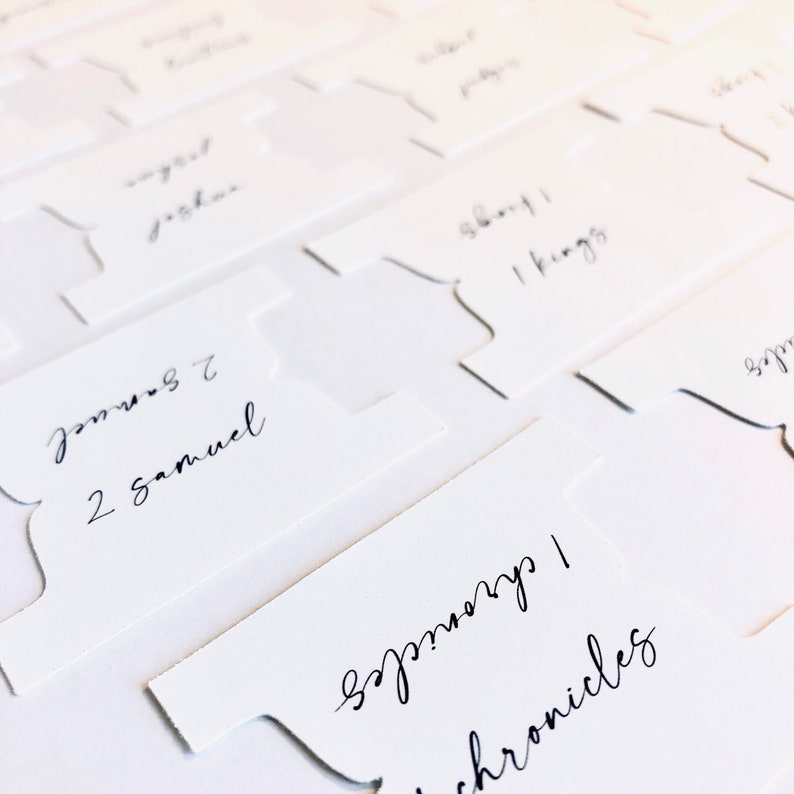 judges
joshua
joshua
1 kings
1 kings
2 samuel
2 samuel
1 chronicles
1 chronicles